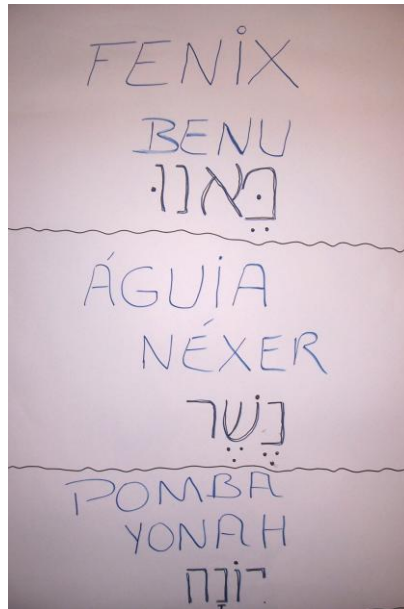 FENIX
BENU
בֵּאנוּ
ÁGUIA
NÉXER
נֶשֶׁר
POMBA
YONAH
יוֹנָה